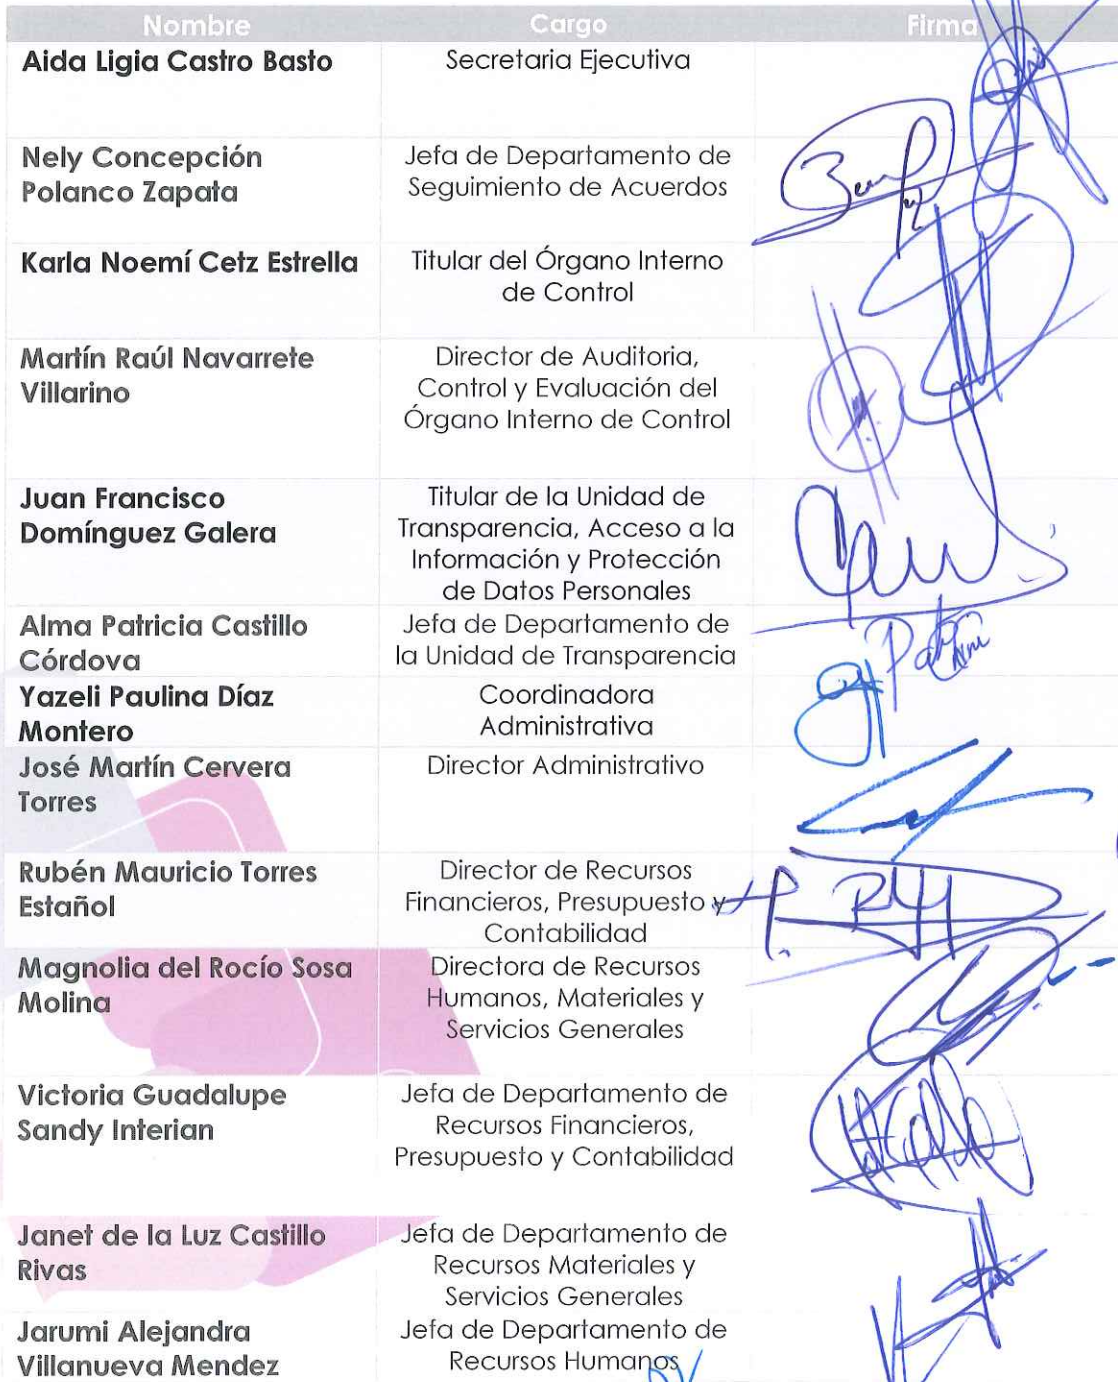 Nombre Cargo Firma
Aida Ligia Castro Basto Secretaria Ejecutiva
Nely Concepción
Polanco Zapata
Jefa de Departamento de
Seguimiento de Acuerdos
Karla Noemí Cetz Estrella
Titular del Órgano Interno
de Control
Martín Raúl Navarrete
Villarino
Director de Auditoria,
Control y Evaluación del
Órgano Interno de Control
Juan Francisco
Domínguez Galera
Titular de la Unidad de
Transparencia, Acceso a la
Información y Protección
de Datos Personales
Alma Patricia Castillo
Córdova
Jefa de Departamento de
la Unidad de Transparencia
Yazeli Paulina Díaz
Montero
Coordinadora
Administrativa
José Martín Cervera
Torres
Director Administrativo
Rubén Mauricio Torres
Estañol
Director de Recursos
Financieros, Presupuesto y
Contabilidad
Magnolia del Rocío Sosa
Molina
Directora de Recursos
Humanos, Materiales y
Servicios Generales
Victoria Guadalupe
Sandy Interian
Jefa de Departamento de
Recursos Financieros,
Presupuesto y Contabilidad
Janet de la Luz Castillo
Rivas
Jefa de Departamento de
Recursos Materiales y
Servicios Generales
Jarumi Alejandra
Villanueva Mendez
Jefa de Departamento de
Recursos Humanos